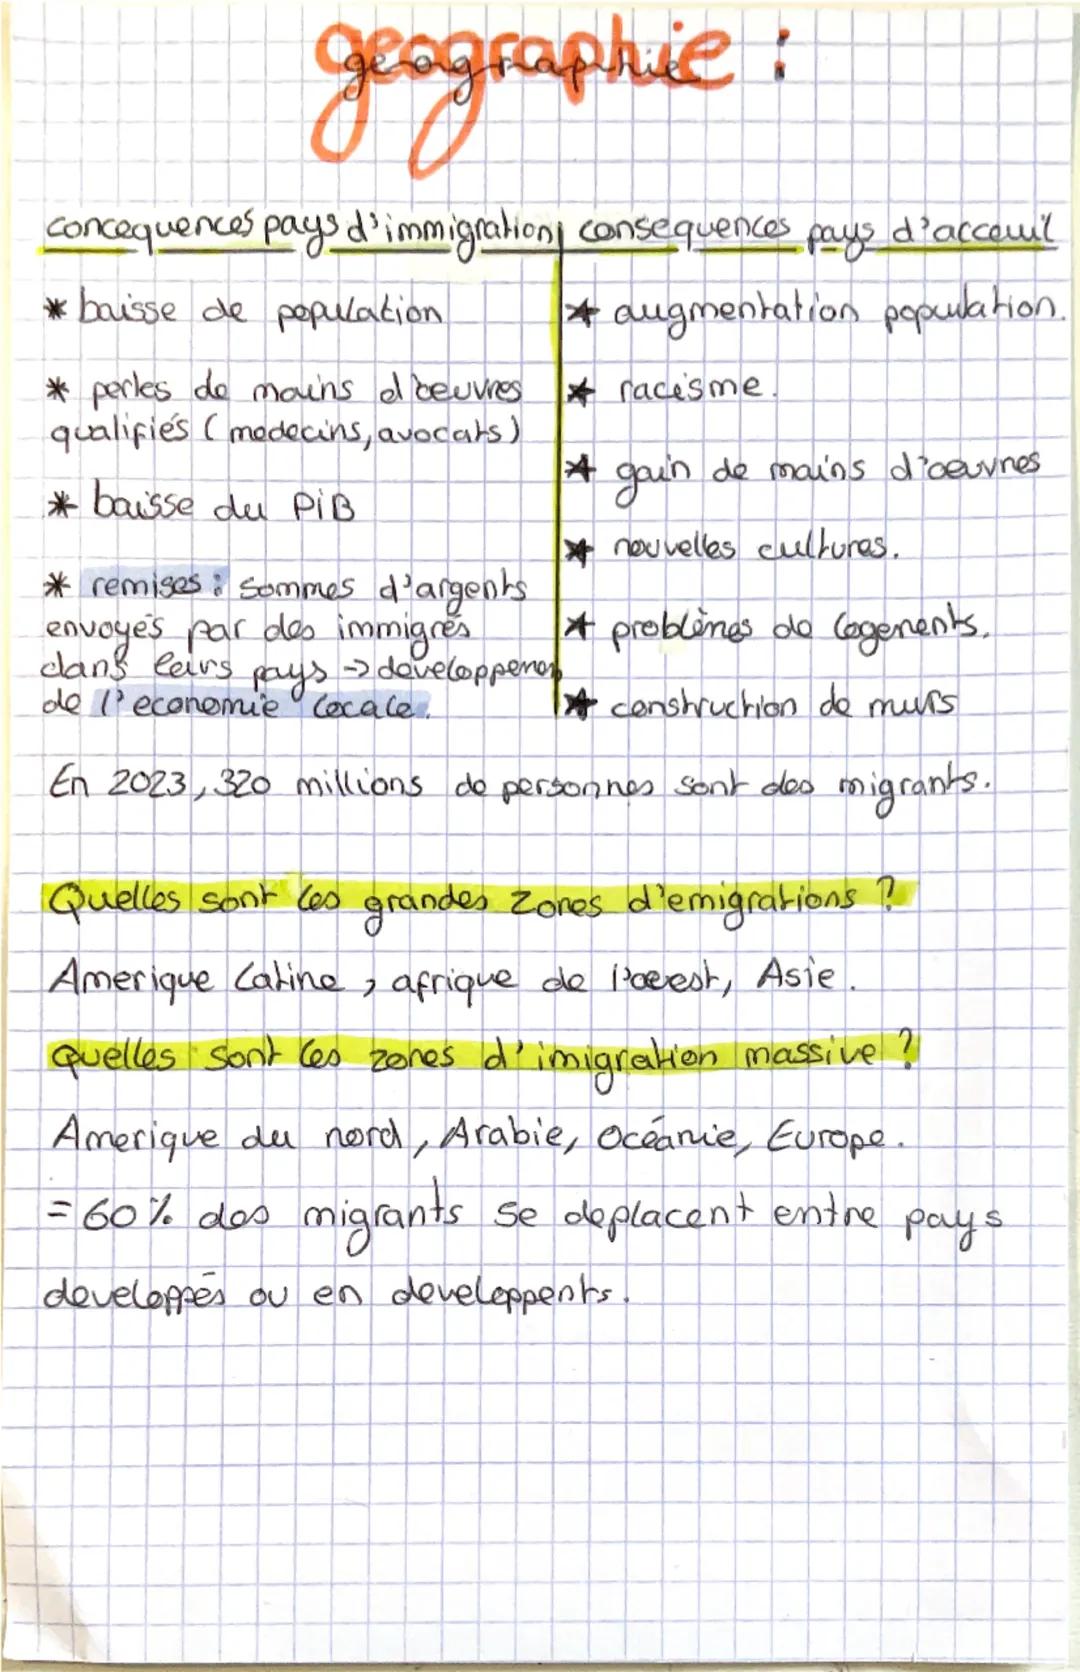 geographie :
concequences pays d'immigration | consequences pays d'acceuil
* baisse de population
* perles de mains d'oeuvres
qualifiés (medecins, avocats)
* baisse du PiB
* remises : sommes d'argents
envoyés par des immigrés
dans leurs pays -> developpement
de l'economie locale.
* augmentation population.
* racisme.
* gain de mains d'oeuvres
* nouvelles cultures.
* problèmes de logements.
* construction de murs
En 2023, 320 millions de personnes sont des migrants.
Quelles sont les grandes zones d'emigrations ?
Amerique latine, afrique de l'ouest, Asie.
Quelles sont les zones d'imigration massive ?
Amerique du nord, Arabie, Océanie, Europe.
= 60% des migrants se deplacent entre pays
developpés ou en developpents.